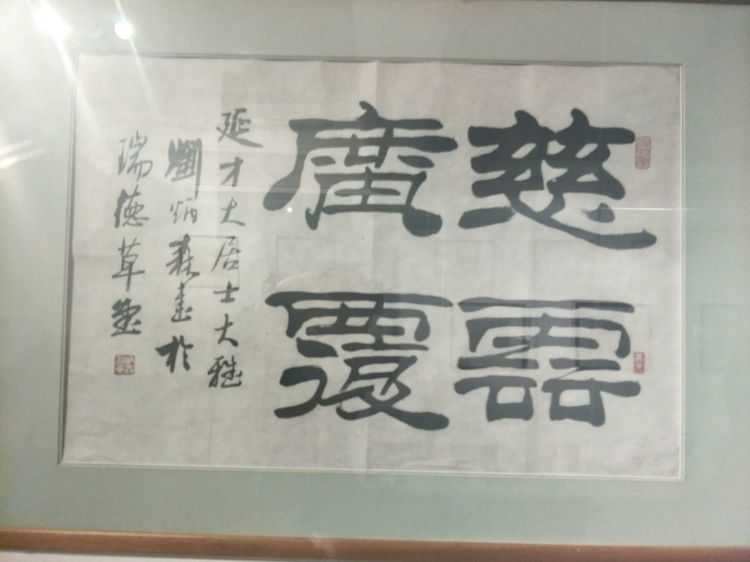 慈雲
廣覆
延才大居士大雅
劉炳森書於
瑞德草堂